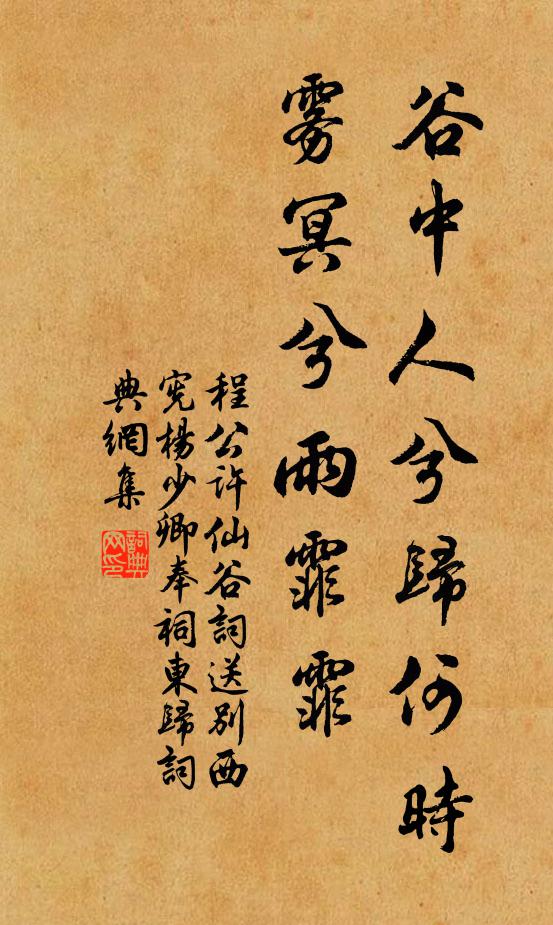 谷中人兮歸何時
雾冥兮雨霏霏
程公许仙谷詞送別西
宪楊少卿奉祠東歸詞
典網集
詞典网印